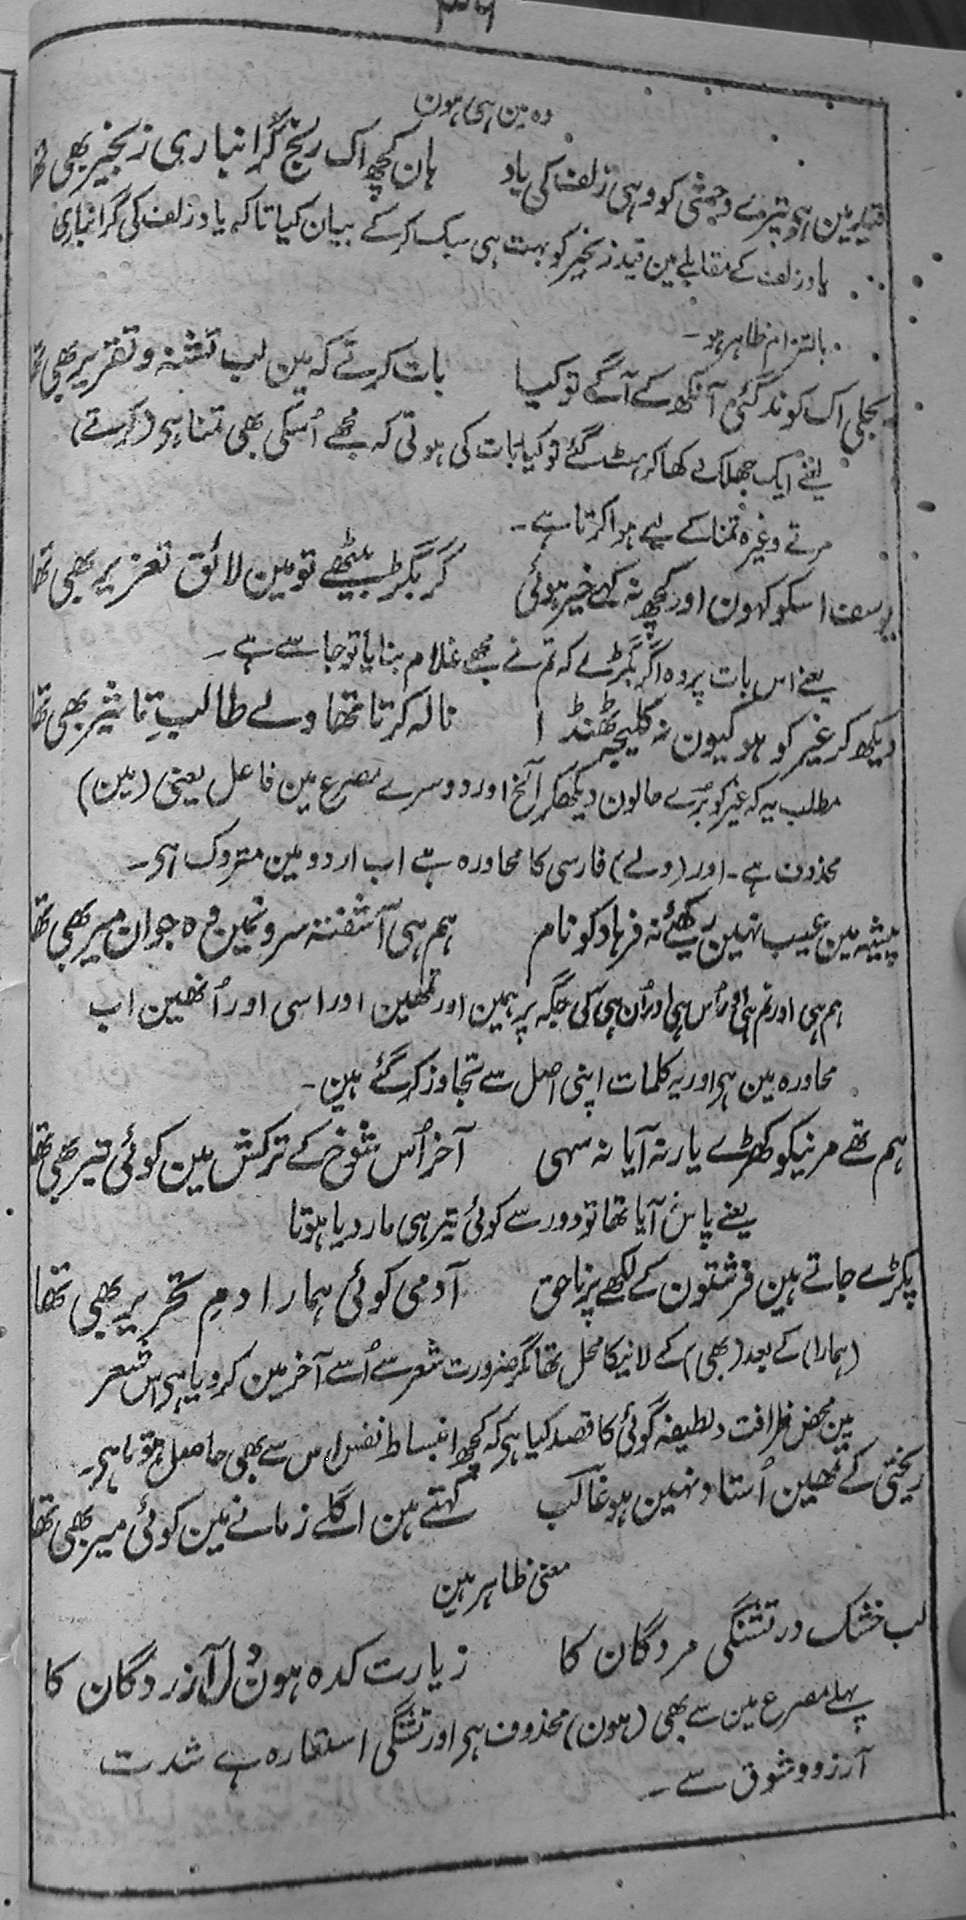 وہ مین ہی ہون
قید مین ہو تیرے وحشی کو وہی زلف کی یاد ہان کچھ اک رنج گرانباری زنجیر بھی تھا
یاد زلف کے مقابلے مین قید زنجیر کو بہت ہی سبک کرکے بیان کیا تاکہ یاد زلف کی گرانباری
بالتزام ظاہر ہو۔
بجلی اک کوند گئی آنکھ کے آگے تو کیا بات کرتے کہ مین لب تشنہ و تقریر بھی تھا
یعنے ایک جھلک دکھا کر ہٹ گئے تو کیا بات کی ہوتی کہ مجھے اُسکی بھی تمنا ہو (کرتے)
مرتے وغیرہ تمنا کے لیے ہوا کرتا ہے۔
یوسف اسکو کہون اور کچھ نہ کہے خیر ہوئی گر بگڑ بیٹھے تو مین لائق تعزیر بھی تھا
یعنے اس بات پر وہ اگر بگڑے کہ تم نے مجھے غلام بنایا تو جا سے ہے۔
دیکھ کر غیر کو ہو کیون نہ کلیجہ ٹھنڈا نالہ کرتا تھا ولے طالبِ تاثیر بھی تھا
مطلب یہ کہ غیر کو بُرے حالون دیکھکر آلخ اور دوسرے مصرع مین فاعل یعنی (مین)
محذوف ہے۔ اور (ولے) فارسی کا محاورہ ہے اب اردو مین متروک ہی۔
پیشہ مین عیب نہین رکھئے نہ فرہاد کو نام ہم ہی آشفتہ سرونمین وہ جوان میر بھی تھا
ہم ہی اور تم ہی اور اُس ہی اور اُن ہی کی جگہ پر ہمین اور تمھین اور اسی اور اُنھین اب
محاورہ مین ہی اور یہ کلمات اپنی اصل سے تجاوز کر گئے ہین۔
ہم تھے مرنیکو کھڑے یار نہ آیا نہ سہی آخر اُس شوخ کے ترکش مین کوئی تیر بھی تھا
یعنے پاس آیا تھا تو دور سے کوئی تیر ہی مار دیا ہوتا
پکڑے جاتے ہین فرشتون کے لکھے پر ناحق آدمی کوئی ہمارا دمِ تحریر بھی تھا
(ہمارا) کے بعد (بھی) کے لانیکا محل تھا مگر ضرورت شعر سے اُسے آخر مین کر دیا ہی اس شعر
مین محض ظرافت و لطیفہ گوئی کا قصد کیا ہی کہ کچھ انبساط نفس اس سے بھی حاصل ہوتا ہی۔
ریختی کے تمھین اُستاد نہین ہو غالب کہتے ہین اگلے زمانے مین کوئی میر بھی تھا
معنی ظاہر ہین
لب خشک در تشنگی مردگان کا زیارت کدہ ہون دل آزردگان کا
پہلے مصرع مین سے بھی (ہون) محذوف ہی اور تشنگی استعارہ ہے شدت
آرزو و شوق سے۔